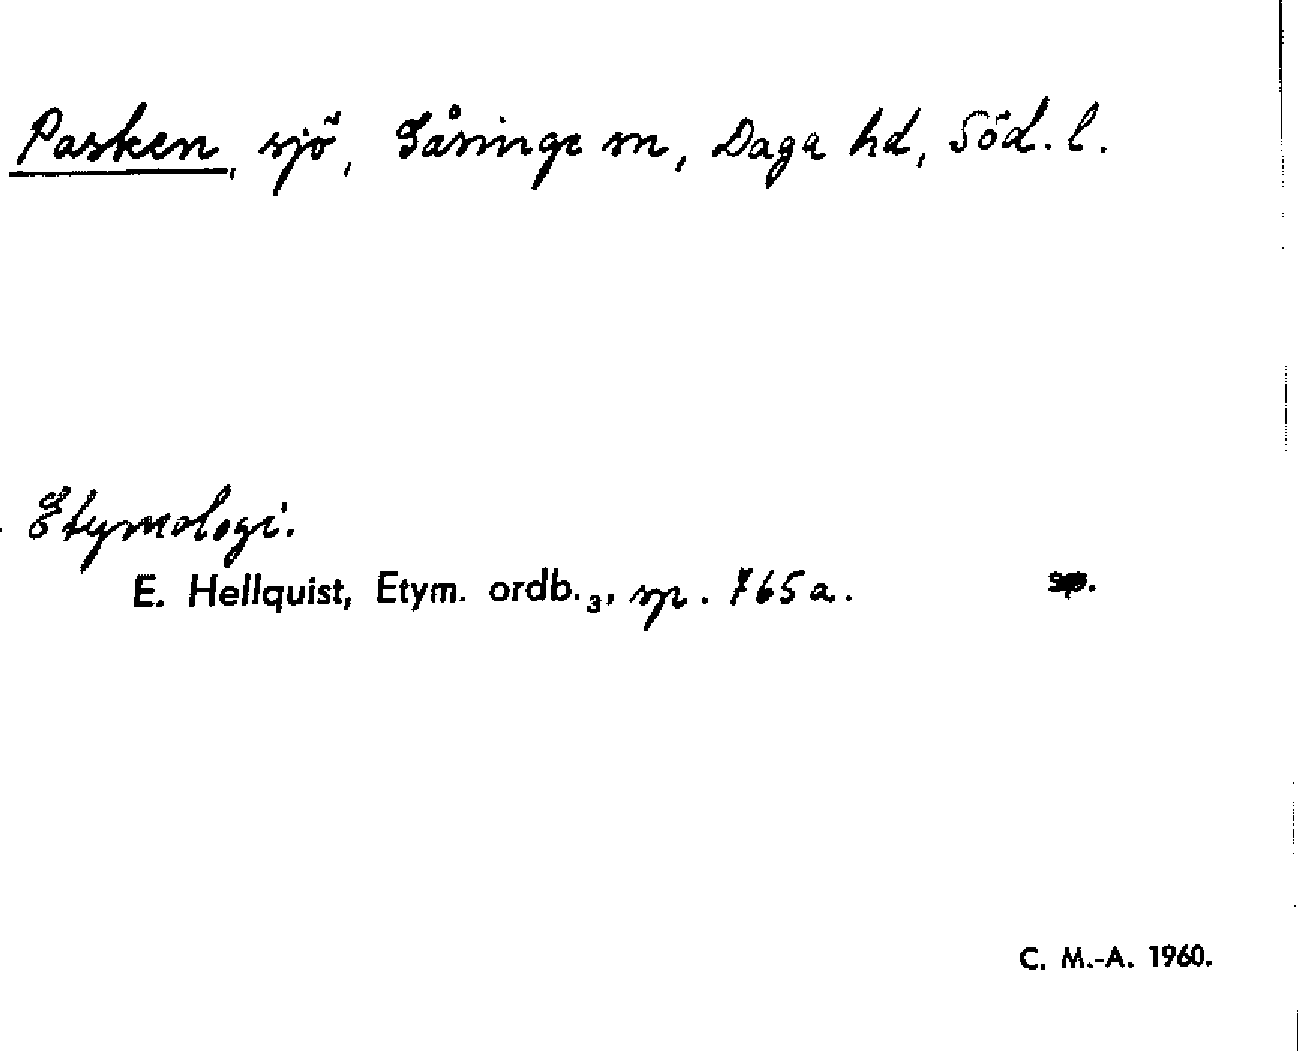 Pasken, sjö, Gåsinge sn, Daga hd, Söd. l.
Etymologi.
E. Hellquist, Etym. ordb.₃, sp. 765a. sp.
C. M.-A. 1960.